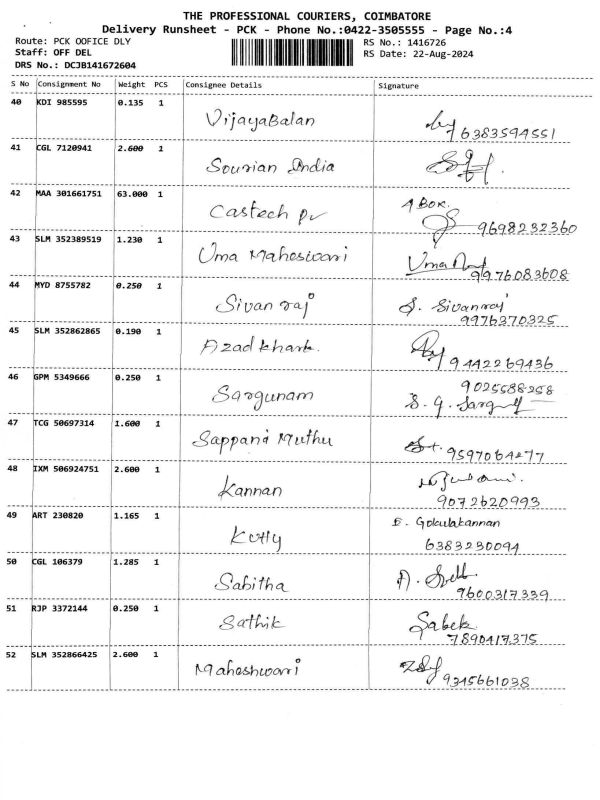 THE PROFESSIONAL COURIERS, COIMBATORE
Delivery Runsheet - PCK - Phone No.:0422-3505555 - Page No.:4
Route: PCK OOFICE DLY RS No.: 1416726
Staff: OFF DEL RS Date: 22-Aug-2024
DRS No.: DCJB141672604
S No Consignment No Weight PCS Consignee Details Signature
40 KDI 985595 0.135 1
Vijayabalan
6383594551
41 CGL 7120941 2.600 1
Sourian India
42 MAA 301661751 63.000 1
Castech Pv
1 Box.
9698232360
43 SLM 352389519 1.230 1
Uma Maheswari
Uma
9976083608
44 MYD 8755782 0.250 1
Sivan raj
S. Sivanraj
9976370325
45 SLM 352862865 0.190 1
Azad khark.
9442269436
46 GPM 5349666 0.250 1
Sargunam
9025588258
S. G. Sargu
47 TCG 50697314 1.600 1
Sappani Muthu
9597064277
48 IXM 506924751 2.600 1
Kannan
9072620993
49 ART 230820 1.165 1
Kutty
E. Gokulakannan
6383230094
50 CGL 106379 1.285 1
Sabitha
7600317339
51 RJP 3372144 0.250 1
Sathik
Sabek
7890417375
52 SLM 352866425 2.600 1
Maheshwari
9345661038